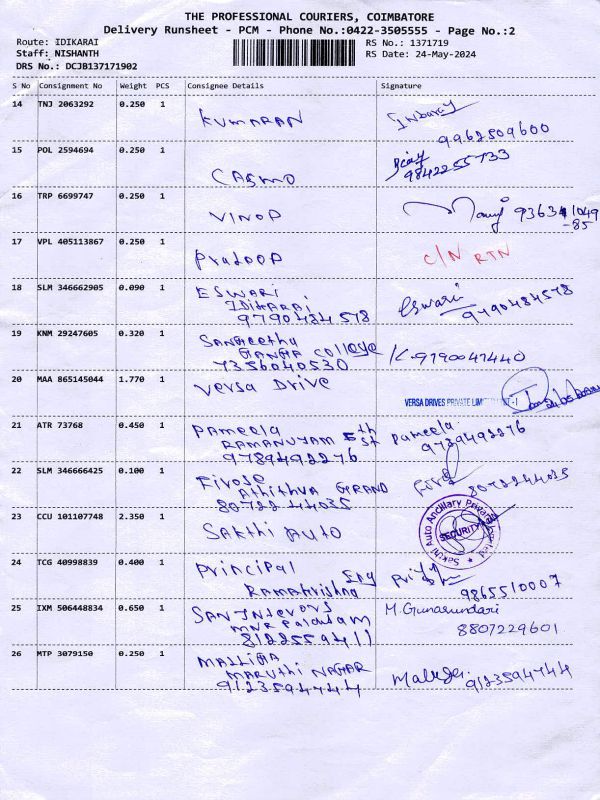 THE PROFESSIONAL COURIERS, COIMBATORE
Delivery Runsheet - PCM - Phone No.:0422-3505555 - Page No.:2
Route: IDIKARAI
Staff: NISHANTH
DRS No.: DCJB137171902
RS No.: 1371719
RS Date: 24-May-2024
S No Consignment No Weight PCS Consignee Details Signature
14 TNJ 2063292 0.250 1
KUMARAN
9962509600
15 POL 2594694 0.250 1
CASMO
9842255733
16 TRP 6699747 0.250 1
VINOP
936341049
-85
17 VPL 405113867 0.250 1
Pradoop C/N RTN
18 SLM 346662905 0.090 1
ESWARI Eswari
IDIKARAI
9790484578 9790484578
19 KNM 29247605 0.320 1
Sangeetha
GANGA College
7356040530 K-9790047440
20 MAA 865145044 1.770 1
Versa Drive
VERSA DRIVES PRIVATE LIMITED UNIT - I
21 ATR 73768 0.450 1
Pameela Pameela
RAMANUYAM 5th st
9789492276 9789492276
22 SLM 346666425 0.100 1
Firose
Athithva GRAND
8072244035 8072244035
23 CCU 101107748 2.350 1
SAKthi Auto
Sakthi Auto Ancillary Private Limited
SECURITY
24 TCG 40998839 0.400 1
Principal
RamaKrishna Eng
9865510007
25 IXM 506448834 0.650 1
M. Gunasundari
8122559411 8807229601
26 MTP 3079150 0.250 1
MALLIGA
MARUTHI NAGAR
9123594744 9123594744